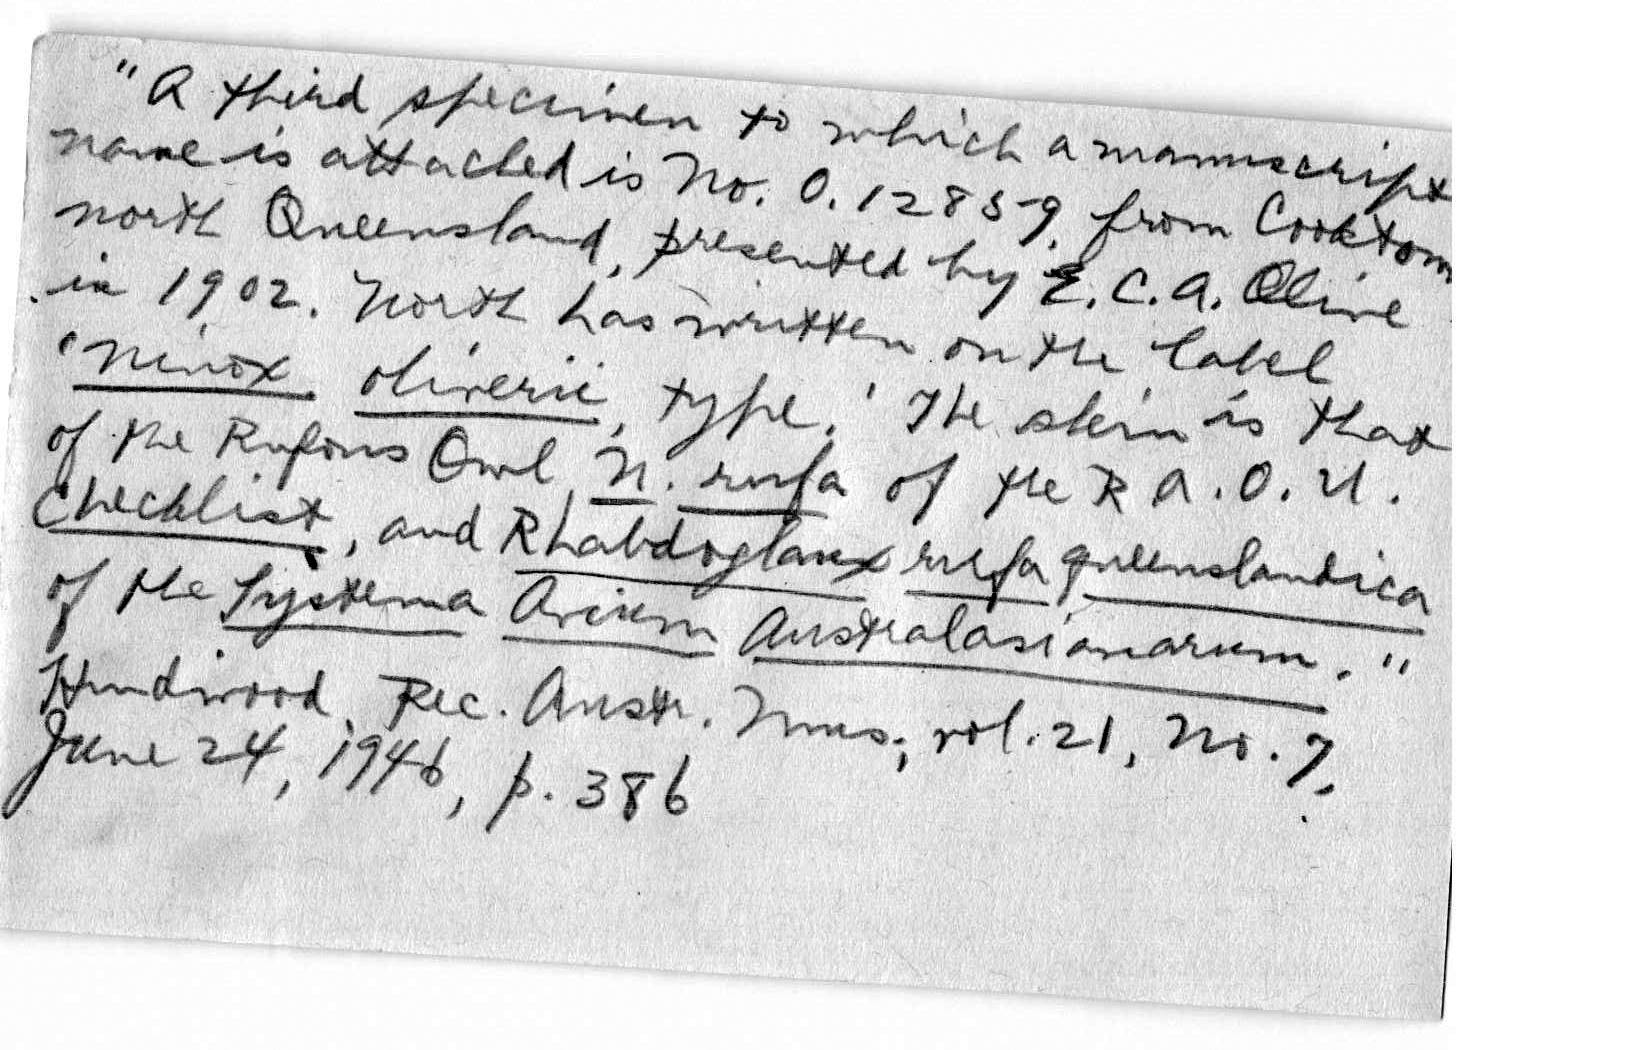 "A third specimen to which a manuscript
name is attached is No. O.12859, from Cooktown
north Queensland, presented by E.C.A. Olive
in 1902. North has written on the label
'Ninox oliverii, type.' The skin is that
of the Rufous Owl, N. rufa of the R.A.O.U.
Checklist, and Rhabdoglaux rufa queenslandica
of the Systema Avium Australasianarum."
Hindwood, Rec. Austr. Mus., vol. 21, No. 7,
June 24, 1946, p. 386